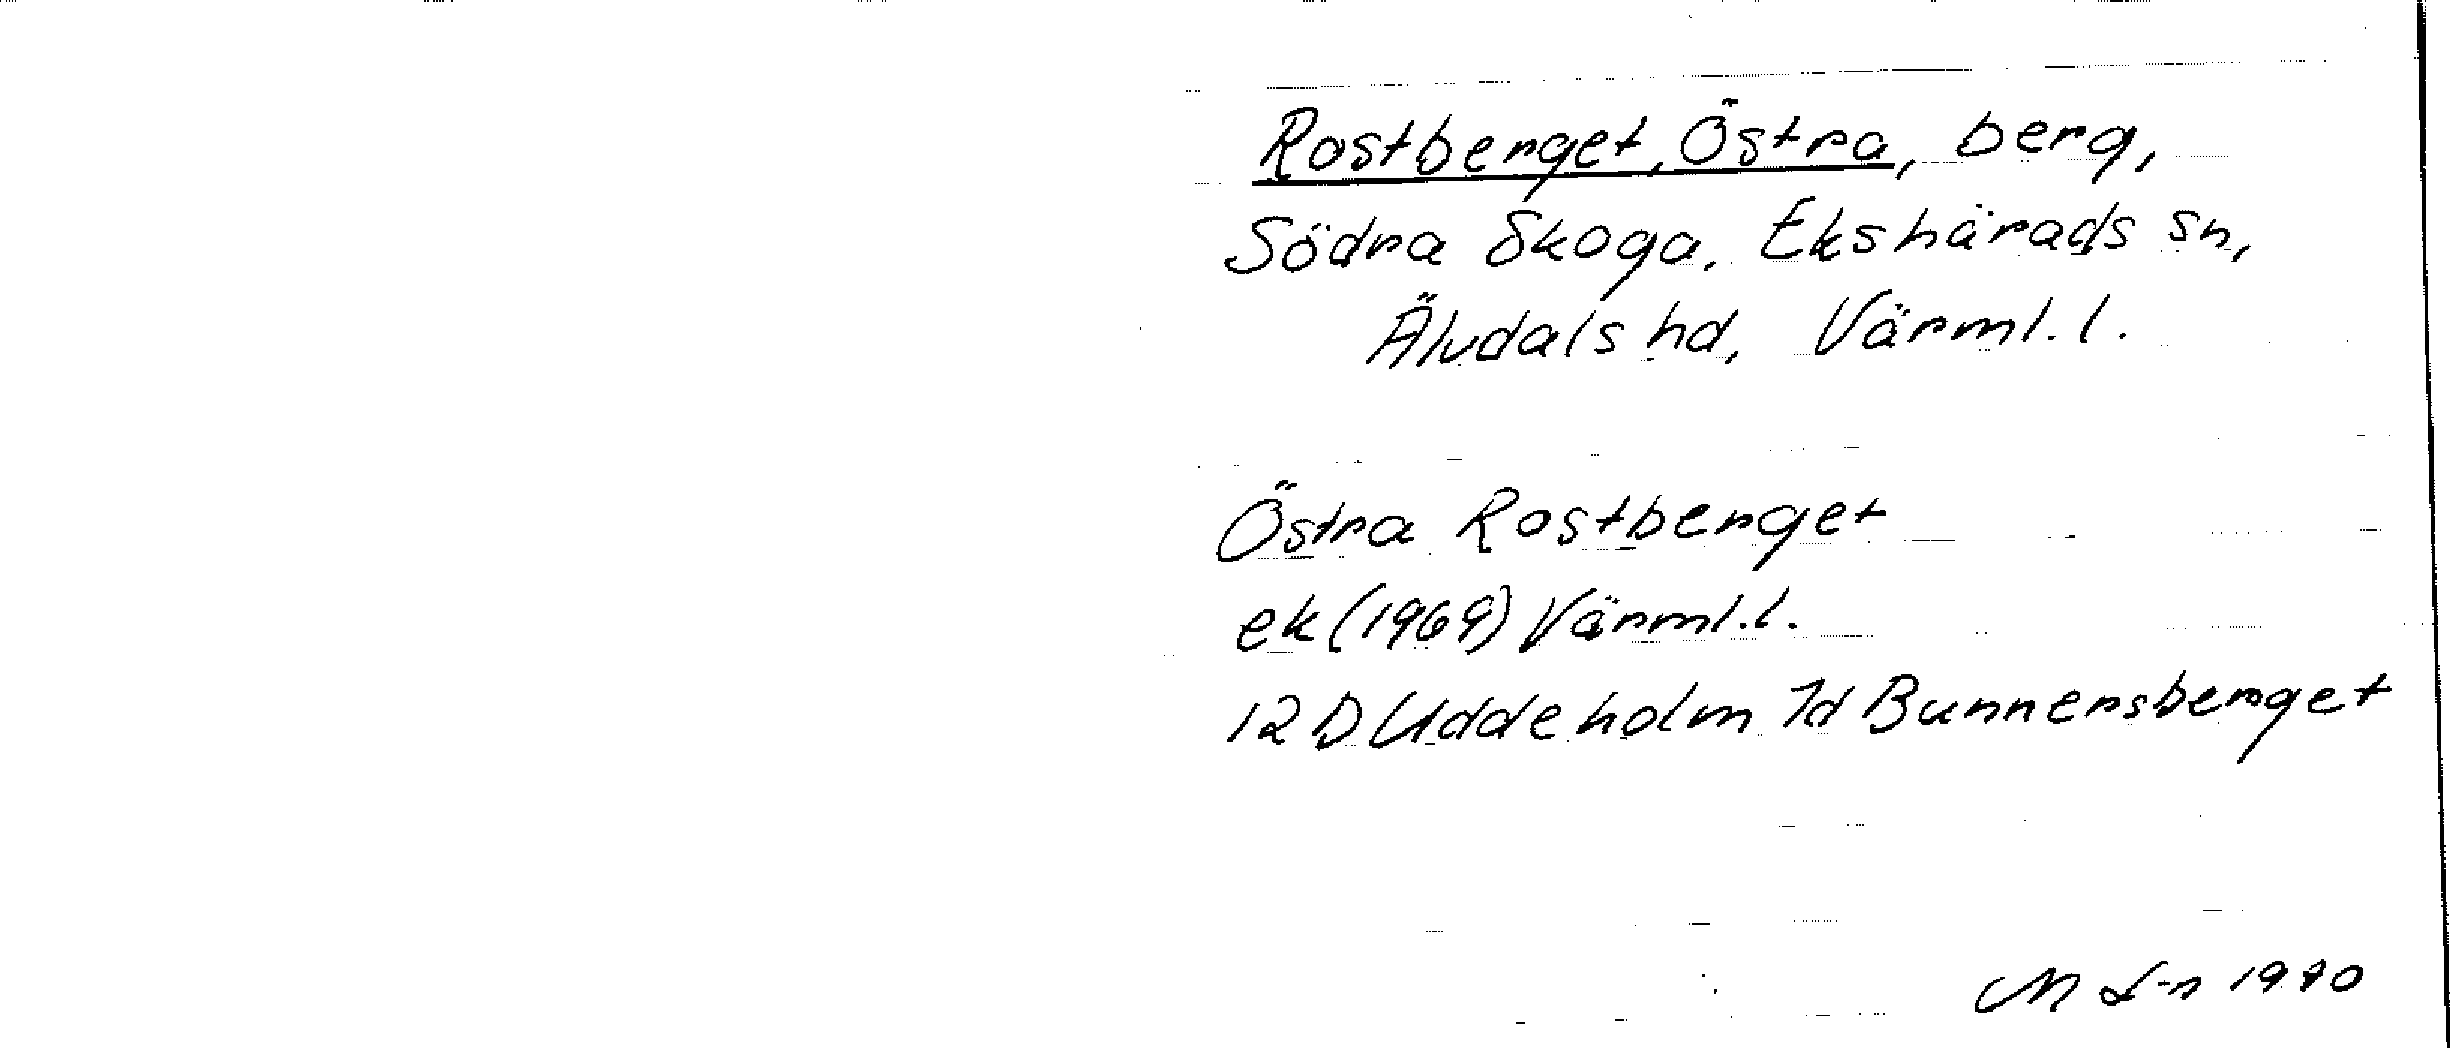 Rostberget, Östra, berg,
Södra Skoga, Ekshärads sn,
Älvdals hd, Värml. l.
Östra Rostberget
ek (1969) Värml. l.
12 D Uddeholm 7d Bunnersberget
M L-n 1970